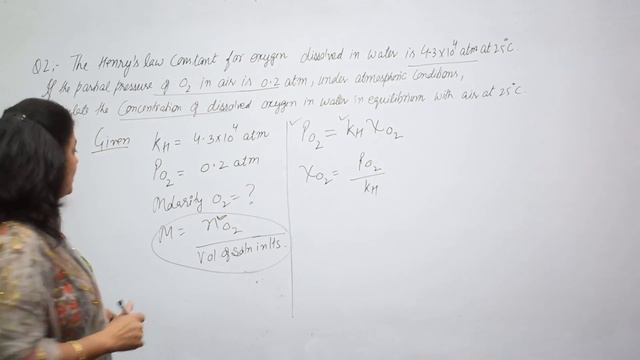 Q2:- The Henry's law constant for oxygen dissolved in water is 4.3×10⁴ atm at 25°C.
If the partial pressure of O₂ in air is 0.2 atm, under atmospheric Conditions,
the Concentration of dissolved oxygen in water in equilibrium with air at 25°C.
Given
K_H = 4.3×10⁴ atm
P_O₂ = 0.2 atm
Molarity O₂ = ?
M = n_O₂ / Vol of soln in lts.
P_O₂ = K_H X_O₂
X_O₂ = P_O₂ / K_H